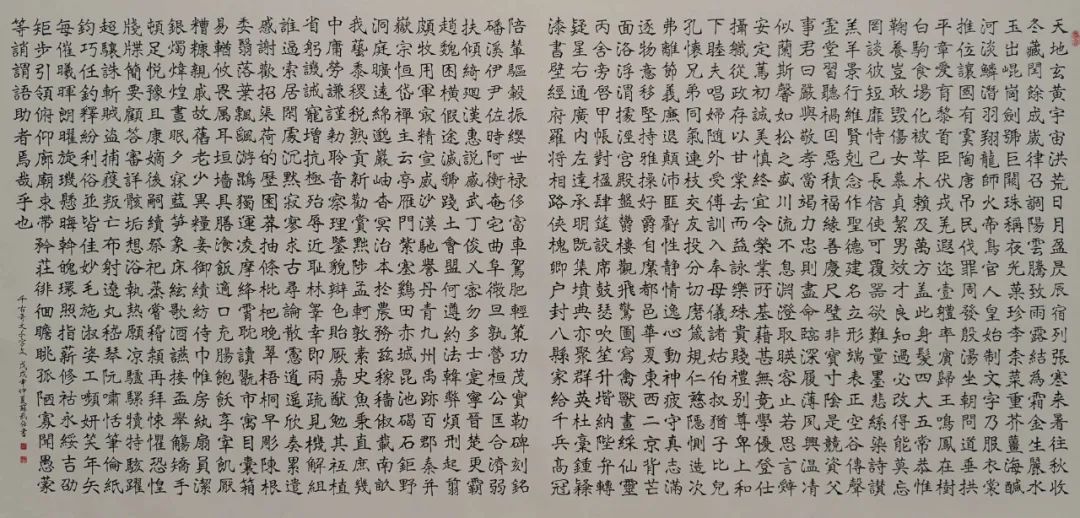 天地玄黃宇宙洪荒日月盈昃辰宿列張寒來暑往秋收
冬藏閏餘成歲律召調陽雲騰致雨露結為霜金生麗水
玉出崐崗劍號巨闕珠稱夜光菓珍李柰菜重芥薑海鹹
河淡鱗潛羽翔龍師火帝鳥官人皇始制文字乃服衣裳
推位讓國有虞陶唐弔民伐罪周發殷湯坐朝問道垂拱
平章愛育黎首臣伏戎羌遐邇壹體率賓歸王鳴鳳在樹
白駒食場化被草木賴及萬方蓋此身髮四大五常恭惟
鞠養豈敢毀傷女慕貞絜男效才良知過必改得能莫忘
罔談彼短靡恃己長信使可覆器欲難量墨悲絲染詩讚
羔羊景行維賢剋念作聖德建名立形端表正空谷傳聲
虛堂習聽禍因惡積福緣善慶尺璧非寶寸陰是競資父
事君曰嚴與敬孝當竭力忠則盡命臨深履薄夙興溫凊
似蘭斯馨如松之盛川流不息淵澄取映容止若思言辭
安定篤初誠美慎終宜令榮業所基藉甚無竟學優登仕
攝職從政存以甘棠去而益詠樂殊貴賤禮別尊卑上和
下睦夫唱婦隨外受傅訓入奉母儀諸姑伯叔猶子比兒
孔懷兄弟同氣連枝交友投分切磨箴規仁慈隱惻造次
弗離節義廉退顛沛匪虧性靜情逸心動神疲守真志滿
逐物意移堅持雅操好爵自縻都邑華夏東西二京背芒
面洛浮渭據涇宮殿盤鬱樓觀飛驚圖寫禽獸畫綵仙靈
丙舍傍啟甲帳對楹肆筵設席鼓瑟吹笙升階納陛弁轉
疑星右通廣內左達承明既集墳典亦聚群英杜稾鍾隸
漆書壁經府羅將相路俠槐卿戶封八縣家給千兵高冠
陪輦驅轂振纓世祿侈富車駕肥輕策功茂實勒碑刻銘
磻溪伊尹佐時阿衡奄宅曲阜微旦孰營桓公匡合濟弱
扶傾綺迴漢惠說感武丁俊乂密勿多士寔寧晉楚更霸
趙魏困橫假途滅虢踐土會盟何遵約法韓弊煩刑起翦
頗牧用軍最精宣威沙漠馳譽丹青九州禹跡百郡秦并
嶽宗恒岱禪主云亭雁門紫塞雞田赤城昆池碣石鉅野
洞庭曠遠綿邈巖岫杳冥治本於農務茲稼穡俶載南畝
我藝黍稷稅熟貢新勸賞黜陟孟軻敦素史魚秉直庶幾
中庸勞謙謹勑聆音察理鑒貌辯色貽厥嘉猷勉其祗植
省躬譏誡寵增抗極殆辱近恥林皋幸即兩疏見機解組
誰逼索居閑處沉默寂寥求古尋論散慮逍遙欣奏累遣
慼謝歡招渠荷的歷園莽抽條枇杷晚翠梧桐早彫陳根
委翳落葉飄颻游鵾獨運凌摩絳霄耽讀翫市寓目囊箱
易輶攸畏屬耳垣墻具膳飡飯適口充腸飽飫享宰飢厭
糟糠親戚故舊老少異糧妾御績紡侍巾帷房紈扇員潔
銀燭煒煌晝眠夕寐藍笋象床絃歌酒讌接盃舉觴矯手
頓足悅豫且康嫡後嗣續祭祀蒸嘗稽顙再拜悚懼恐惶
牋牒簡要顧答審詳骸垢想浴執熱願涼驢騾犢特駭躍
超驤誅斬賊盜捕獲叛亡布射遼丸嵇琴阮嘯恬筆倫紙
鈞巧任釣釋紛利俗並皆佳妙毛施淑姿工嚬妍笑年矢
每催曦暉朗曜旋璣懸晦斡魄環照指薪修祜永綏吉劭
矩步引領俯仰廊廟束帶矜莊徘徊瞻眺孤陋寡聞愚蒙
等誚謂語助者焉哉乎也
千古奇文千字文 戊戌年仲夏